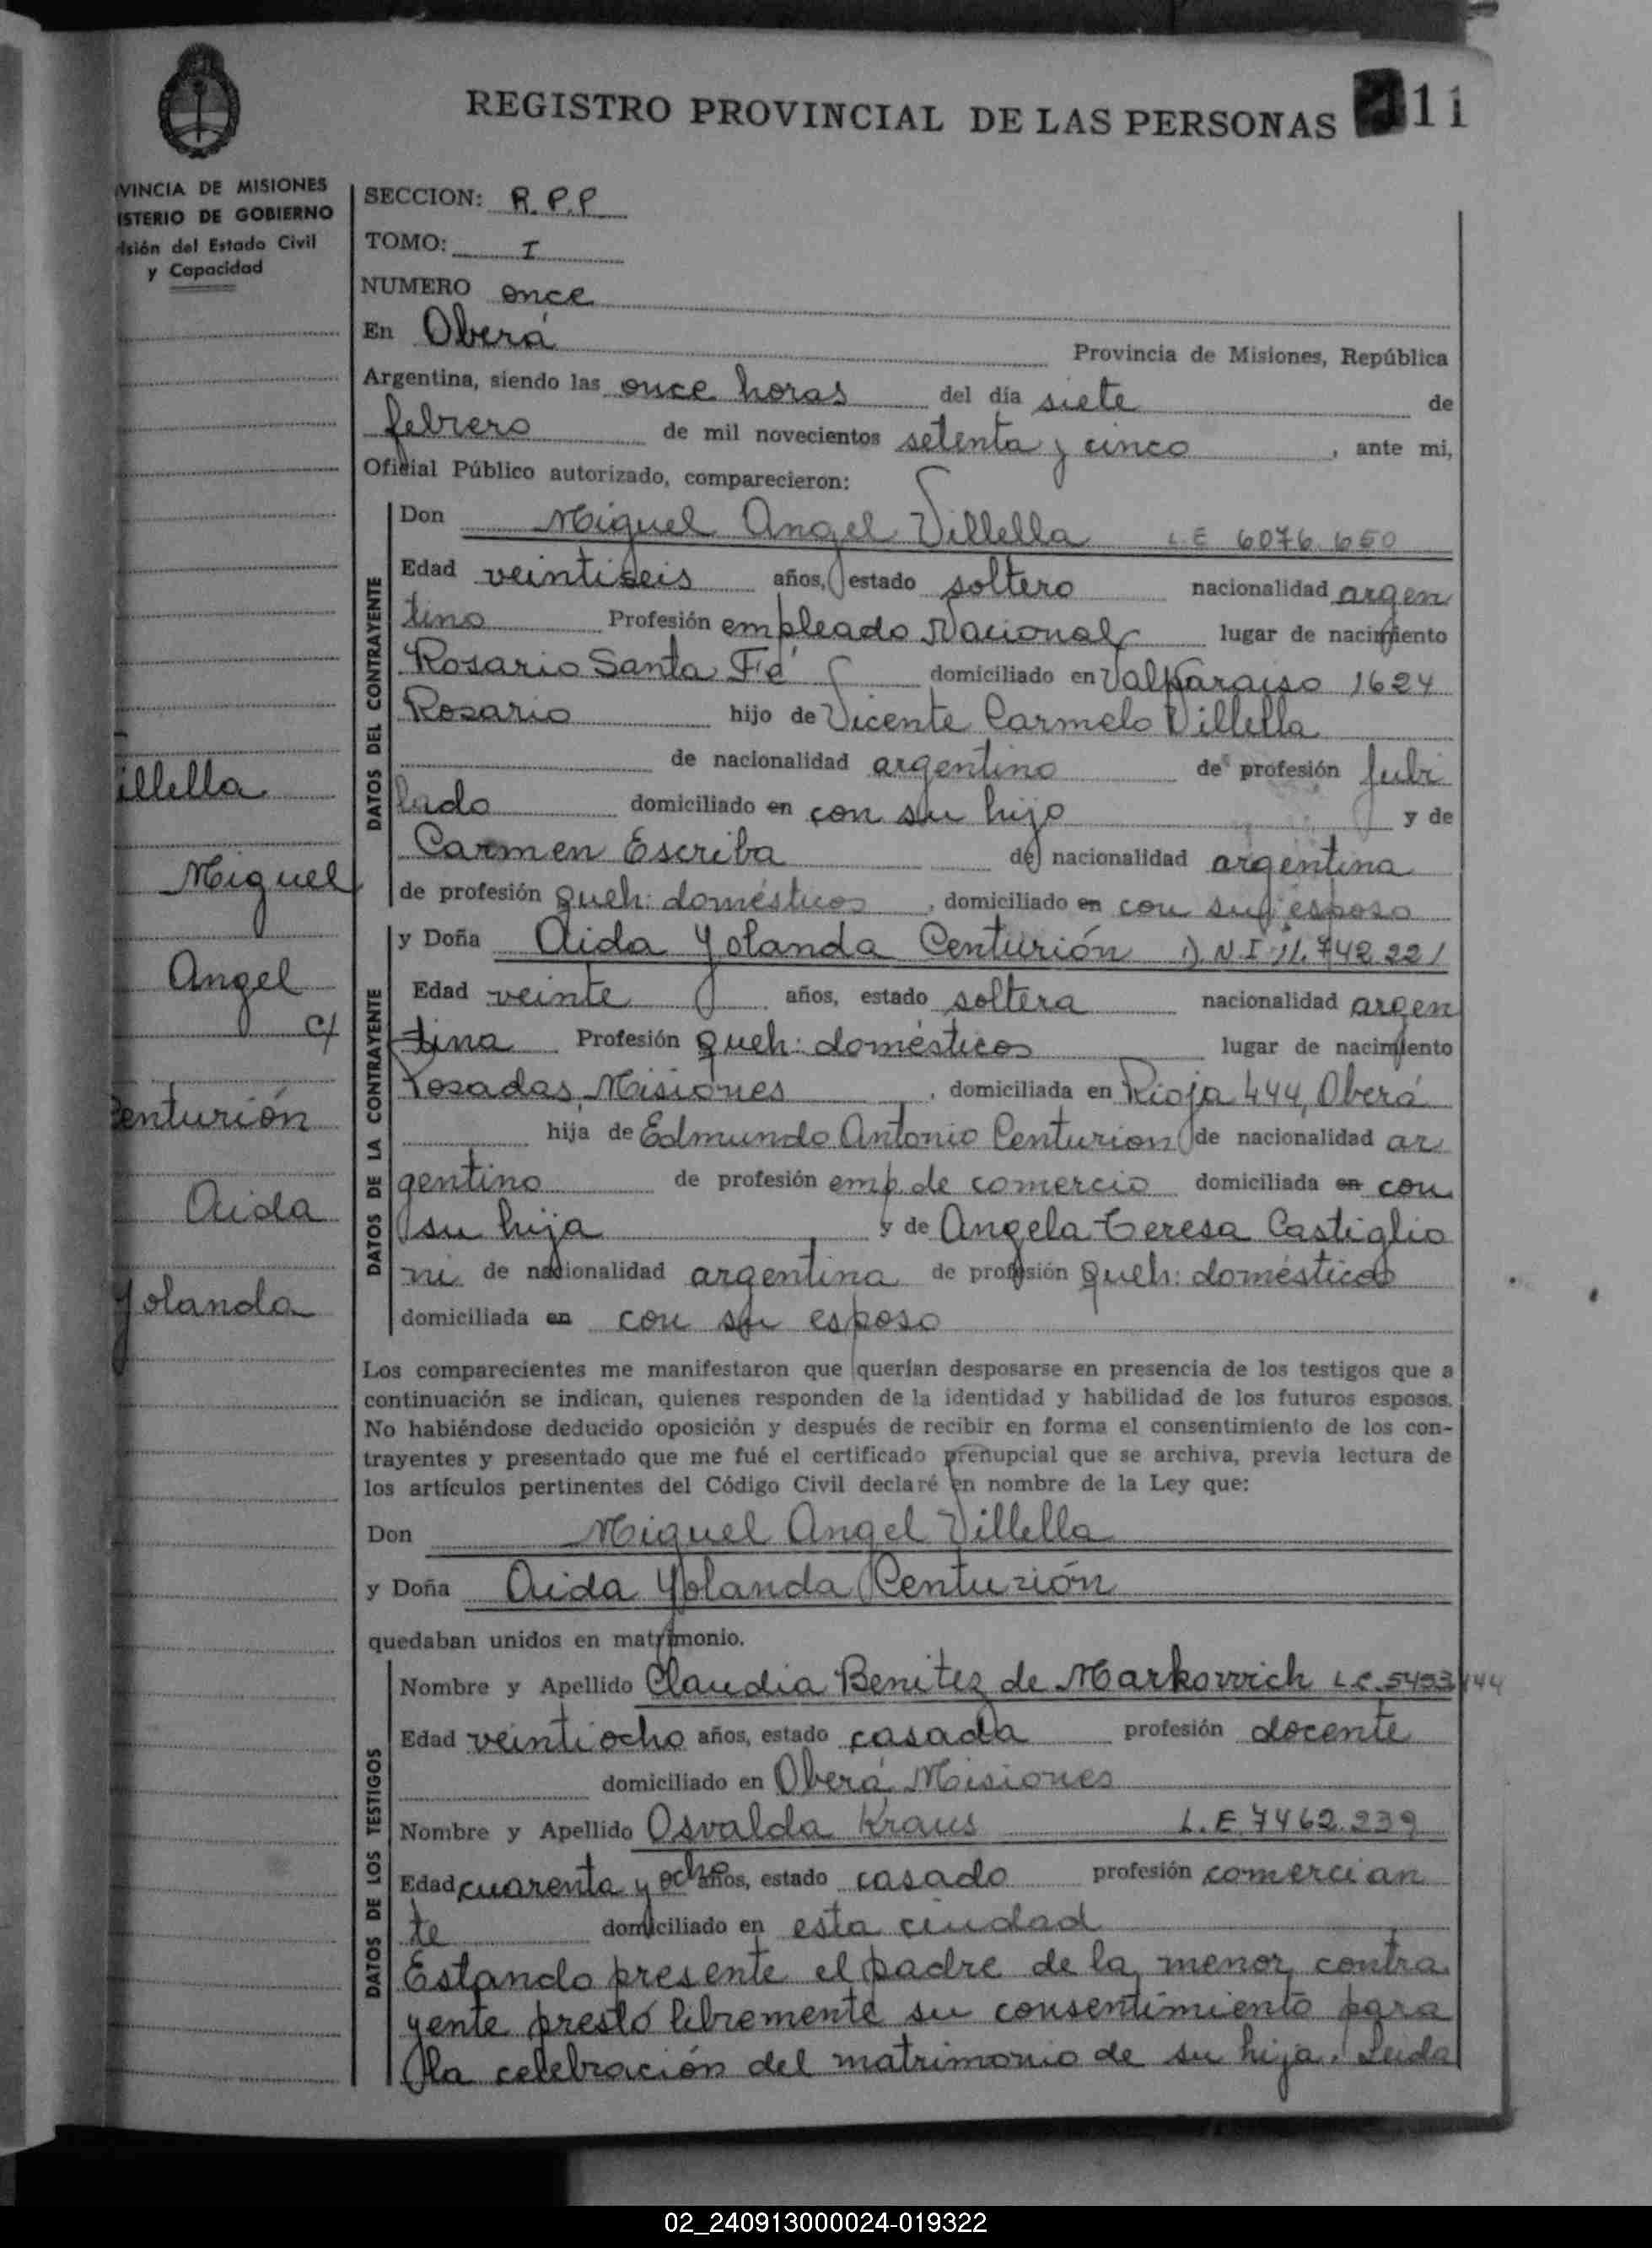 REGISTRO PROVINCIAL DE LAS PERSONAS 11
VINCIA DE MISIONES
ISTERIO DE GOBIERNO
isión del Estado Civil
y Capacidad
SECCION: R.P.P
TOMO: I
NUMERO once
En Oberá Provincia de Misiones, República
Argentina, siendo las once horas del día siete de
febrero de mil novecientos setenta y cinco, ante mi,
Oficial Público autorizado, comparecieron:
DATOS DEL CONTRAYENTE
Don Miguel Angel Villella L E 6076.650
Edad veintiseis años, estado soltero nacionalidad argen
tino Profesión empleado Nacional lugar de nacimiento
Rosario Santa Fé domiciliado en Valparaiso 1624
Rosario hijo de Vicente Carmelo Villella
de nacionalidad argentino de profesión jubi
lado domiciliado en con su hijo y de
Carmen Escriba de nacionalidad argentina
de profesión queh: domésticos, domiciliado en con su esposo
DATOS DE LA CONTRAYENTE
y Doña Aida Yolanda Centurión D.N.I 11.742.221
Edad veinte años, estado soltera nacionalidad argen
tina Profesión queh: domésticos lugar de nacimiento
Posadas, Misiones, domiciliada en Rioja 444, Oberá
hija de Edmundo Antonio Centurion de nacionalidad ar
gentino de profesión emp. de comercio domiciliada en con
su hija y de Angela Teresa Castiglio
ni de nacionalidad argentina de profesión queh: domésticos
domiciliada en con su esposo
Los comparecientes me manifestaron que querían desposarse en presencia de los testigos que a
continuación se indican, quienes responden de la identidad y habilidad de los futuros esposos.
No habiéndose deducido oposición y después de recibir en forma el consentimiento de los con-
trayentes y presentado que me fué el certificado prenupcial que se archiva, previa lectura de
los artículos pertinentes del Código Civil declaré en nombre de la Ley que:
Don Miguel Angel Villella
y Doña Aida Yolanda Centurión
quedaban unidos en matrimonio.
DATOS DE LOS TESTIGOS
Nombre y Apellido Claudia Benitez de Markovvich L.C. 5493144
Edad veintiocho años, estado casada profesión docente
domiciliado en Oberá Misiones
Nombre y Apellido Osvalda Kraus L.E 7462.239
Edad cuarenta y ocho años, estado casado profesión comercian
te domiciliado en esta ciudad
Estando presente el padre de la menor contra
yente prestó libremente su consentimiento para
la celebración del matrimonio de su hija. Leida
illella
Miguel
Angel
c/
Centurión
Aida
Yolanda
02_240913000024-019322